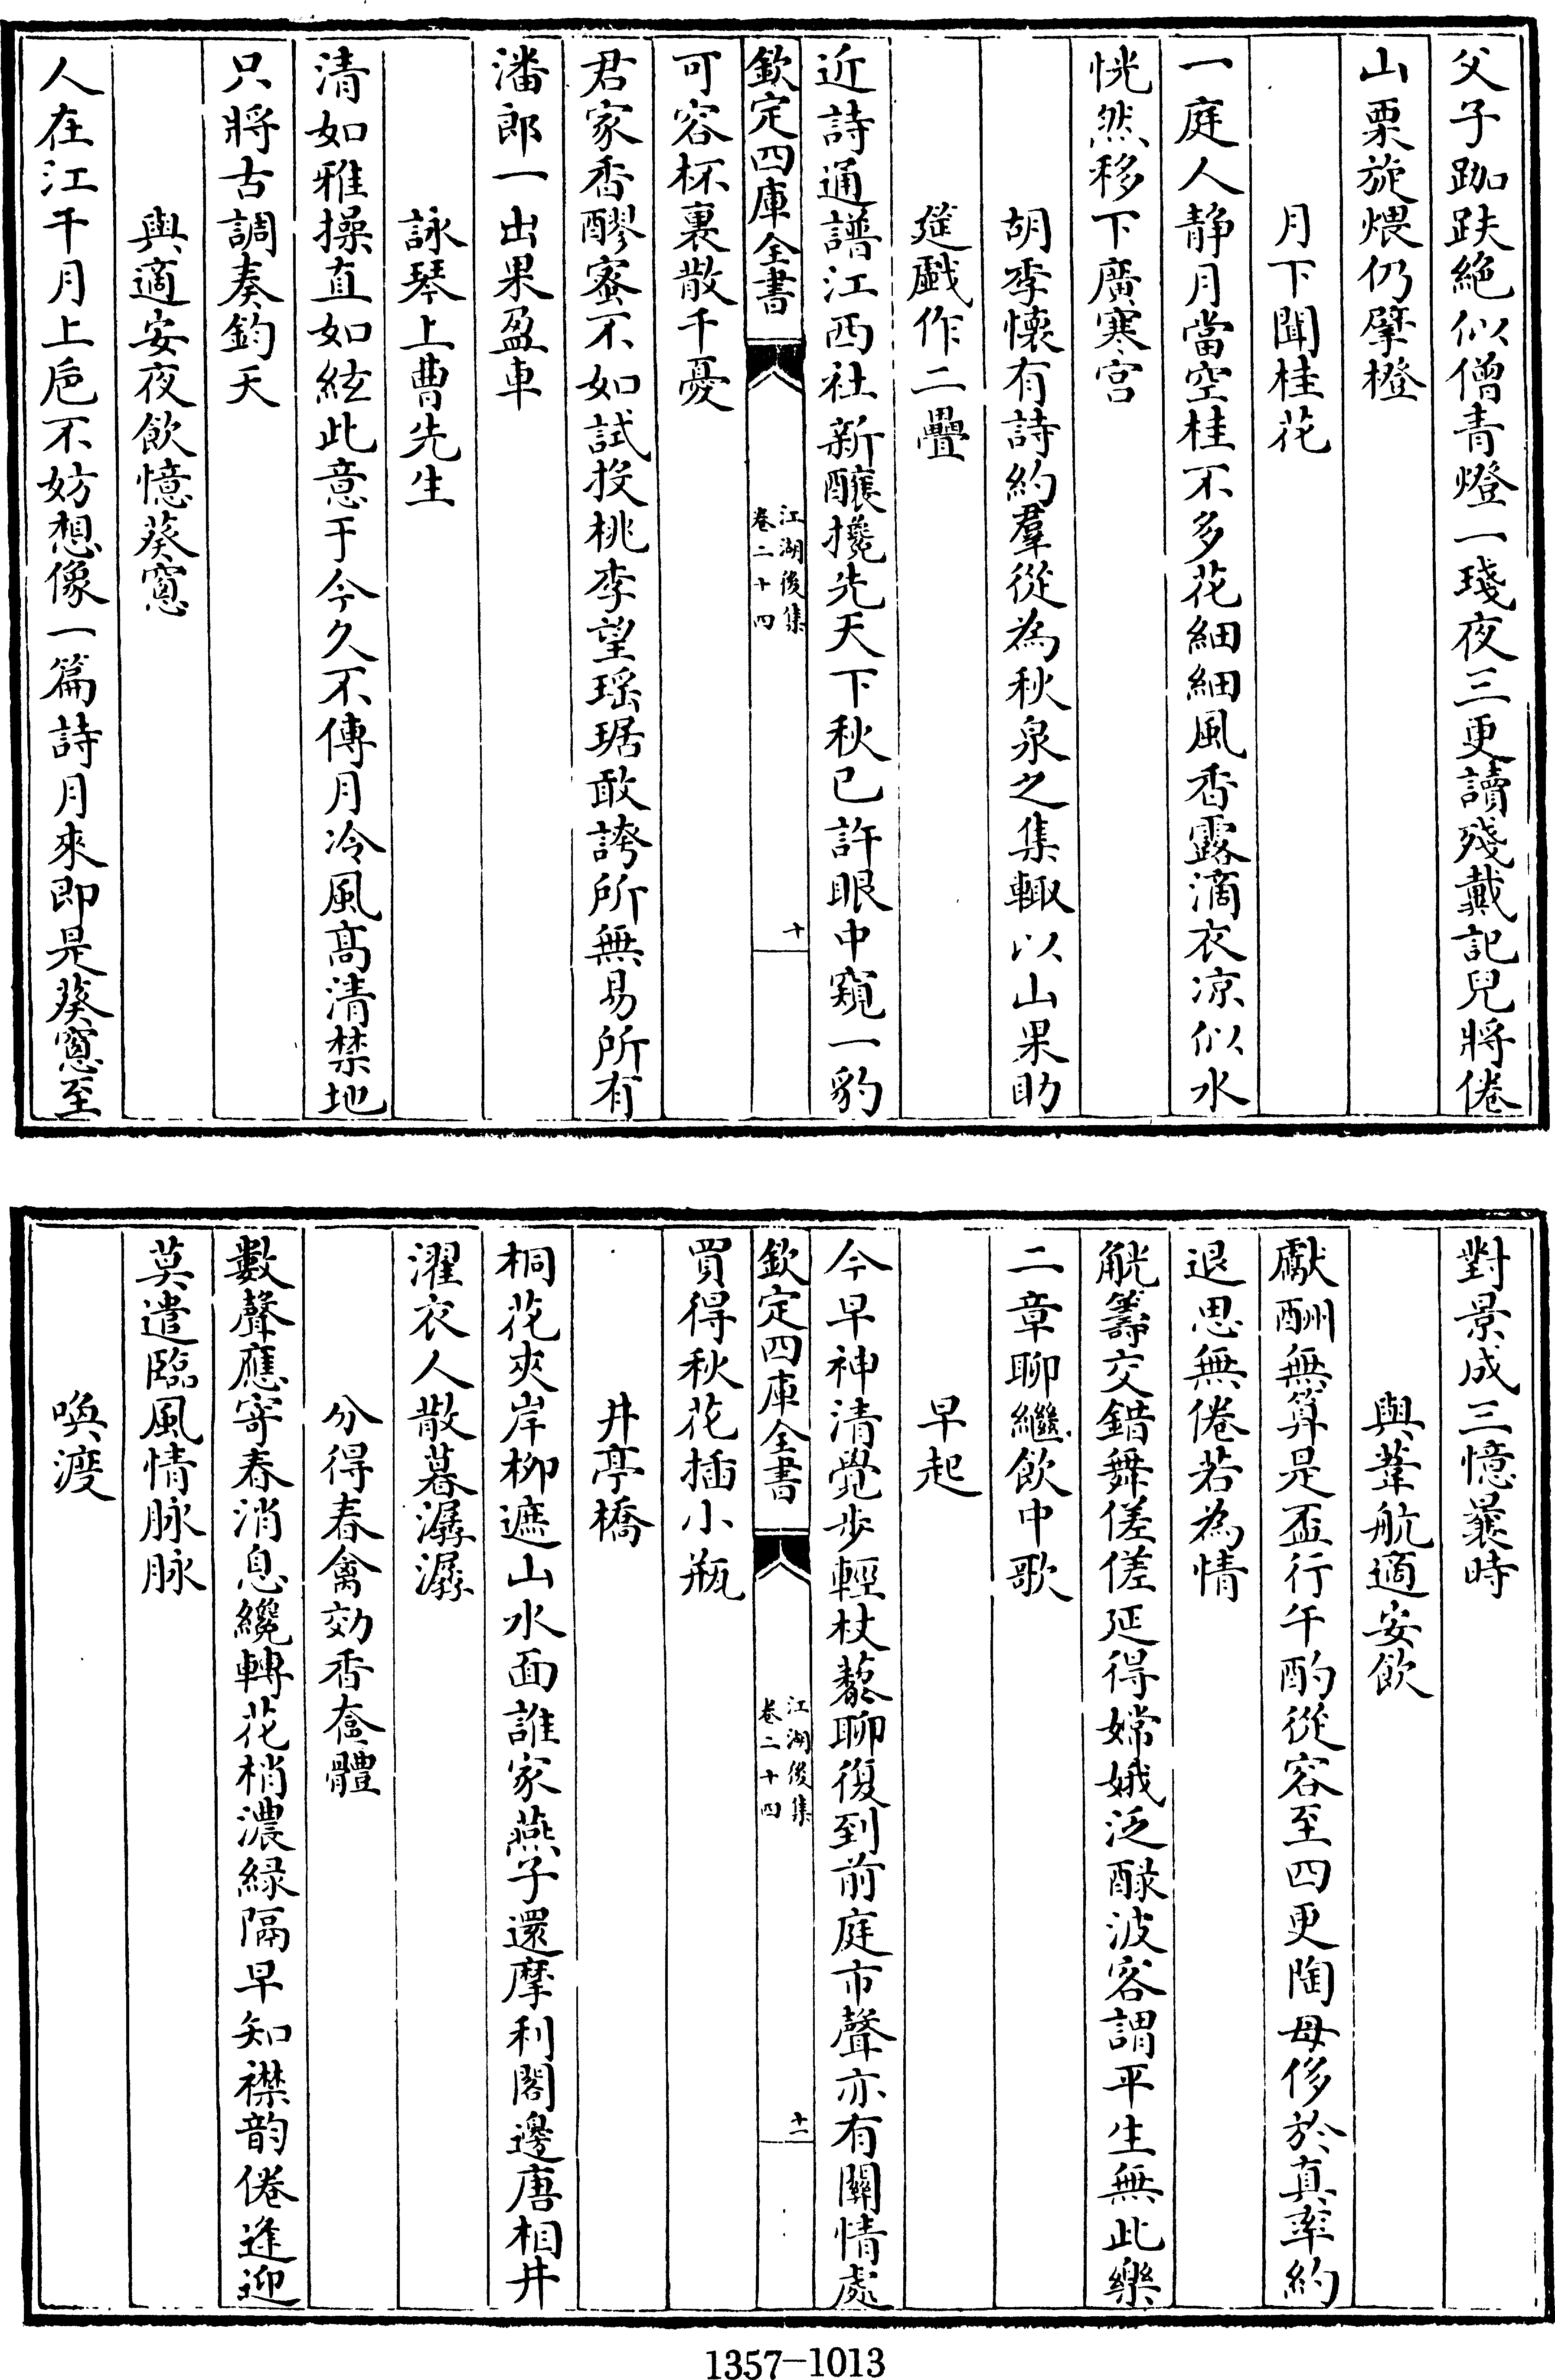 父子跏趺絶似僧青燈一琖夜三更讀殘戴記兒將倦
山栗旋煨仍擘橙
月下聞桂花
一庭人静月當空桂不多花細細風香露滴衣凉似水
恍然移下廣寒宫
胡季懷有詩約羣從為秋泉之集輙以山果助
筵戯作二疊
近詩通譜江西社新釀攙先天下秋已許眼中窺一豹
欽定四庫全書
江湖後集
卷二十四
十
可容杯裏散千憂
君家香醪蜜不如試投桃李望瑶琚敢誇所無易所有
潘郎一出果盈車
詠琴上曹先生
清如雅操直如絃此意于今久不傳月冷風髙清禁地
只將古調奏鈞天
與適安夜飲憶葵窻
人在江干月上巵不妨想像一篇詩月來即是葵窻至
對景成三憶曩時
與葦航適安飲
獻酬無算是盃行午酌從容至四更陶母侈於真率約
退思無倦若為情
觥籌交錯舞傞傞延得嫦娥泛醁波客謂平生無此樂
二章聊繼飲中歌
早起
今早神清覺步輕杖藜聊復到前庭市聲亦有關情處
欽定四庫全書
江湖後集
卷二十四
十一
買得秋花插小瓶
井亭橋
桐花夾岸柳遮山水面誰家燕子還摩利閣邊唐相井
濯衣人散暮潺潺
分得春禽効香奩體
數聲應寄春消息纔轉花梢濃緑隔早知襟韵倦逢迎
莫遣臨風情脉脉
喚渡
1357-1013